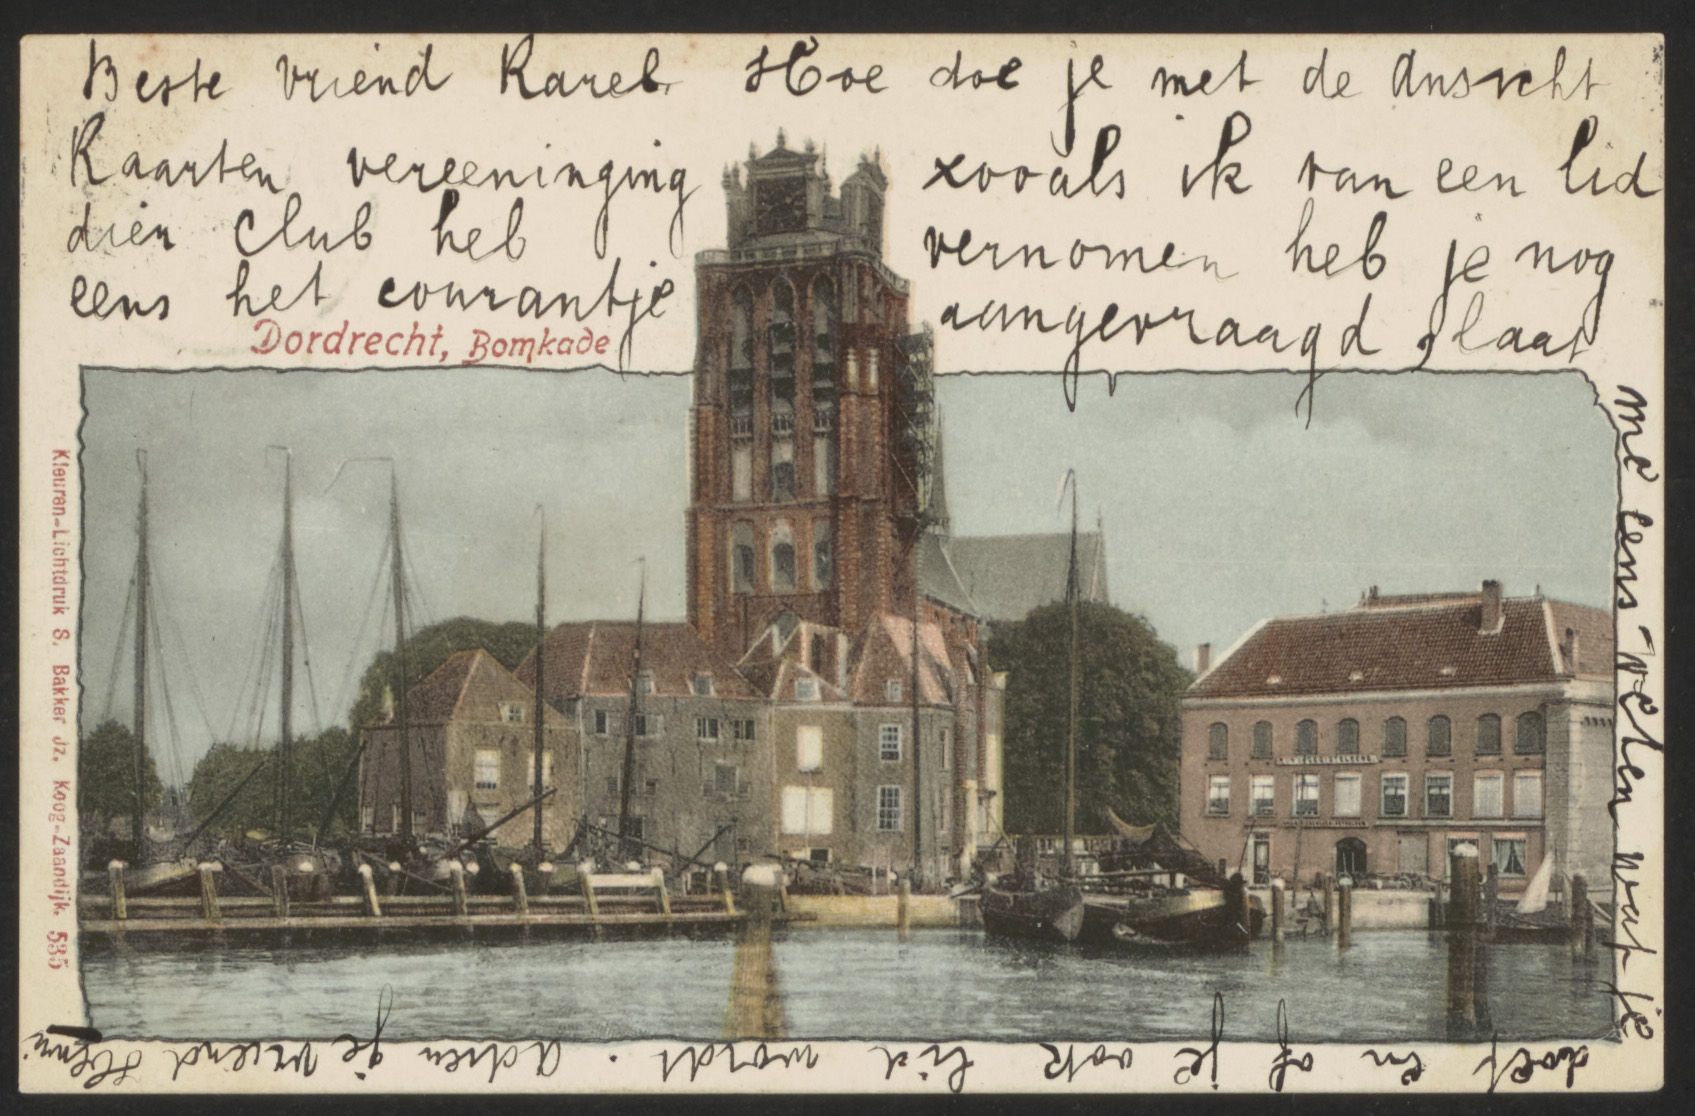 Beste vriend Karel. Hoe doe je met de Ansicht
Kaarten vereeninging zooals ik van een lid
dien club heb vernomen heb je nog
eens het courantje aangevraagd, laat
me eens weten wat je
doet en of je ook lid wordt. Adieu je vriend Henri
Dordrecht, Bomkade
Kleuren-Lichtdruk S. Bakker Jz. Koog-Zaandijk. 535